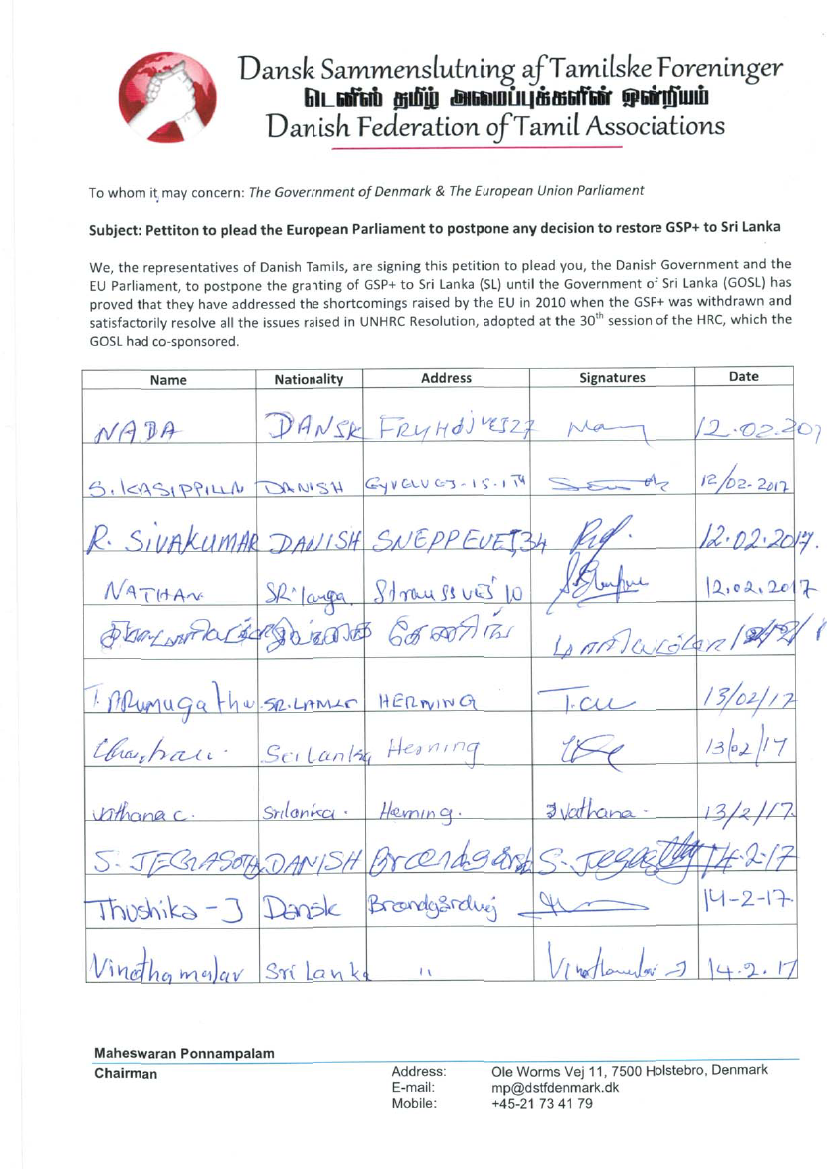 Dansk Sammenslutning af Tamilske Foreninger
டெனிஸ் தமிழ் அமைப்புக்களின் ஒன்றியம்
Danish Federation of Tamil Associations
To whom it may concern: The Government of Denmark & The European Union Parliament
Subject: Pettiton to plead the European Parliament to postpone any decision to restore GSP+ to Sri Lanka
We, the representatives of Danish Tamils, are signing this petition to plead you, the Danish Government and the
EU Parliament, to postpone the granting of GSP+ to Sri Lanka (SL) until the Government of Sri Lanka (GOSL) has
proved that they have addressed the shortcomings raised by the EU in 2010 when the GSP+ was withdrawn and
satisfactorily resolve all the issues raised in UNHRC Resolution, adopted at the 30th session of the HRC, which the
GOSL had co-sponsored.
Name Nationality Address Signatures Date
NADA DANSK 12.02.201
S. KASIPPILLN DANISH 12/02-2017
R. SIVAKUMAR DANISH SNEPPEVEJ 34 12.02.2017.
NATHAN SRilanga Straussvej 10 12.02.2017
T. ARumugathu SR.LANKC HERNING T.au 13/02/17
Sri Lanka Herning 13/02/17
vathana c. Srilanka. Herning. Vathana 13/2/17.
S. JEGASOTH DANISH 14-2-17
Thushika - J Dansk Brændgårdvej 14-2-17.
Vinothamalar Sri Lanka " 14.2.17
Maheswaran Ponnampalam
Chairman Address: Ole Worms Vej 11, 7500 Holstebro, Denmark
E-mail: mp@dstfdenmark.dk
Mobile: +45-21 73 41 79